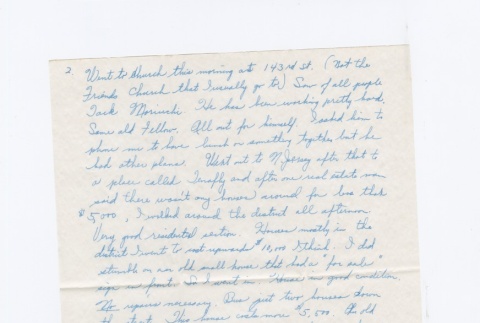 2. Went to church this morning at 143rd st. (Not the
Friends Church that I usually go to) Saw of all people
Jack Moriuchi. He has been working pretty hard.
Same old fellow. All out for himself. I asked him to
phone me to have lunch or something together but he
had other plans. Went out to N Jersey after that to
a place called Tenafly and after one real estate man
said there wasn't any houses around for less than
$5,000, I walked around the district all afternoon.
Very good residential section. Houses mostly in the
district I went to cost upwards $10,000 I think. I did
stumble on an old small house that had a "for sale"
sign in front. So I went in. House in good condition.
No repairs necessary. Dave just two houses down
the street. This house costs more $5,500 the old